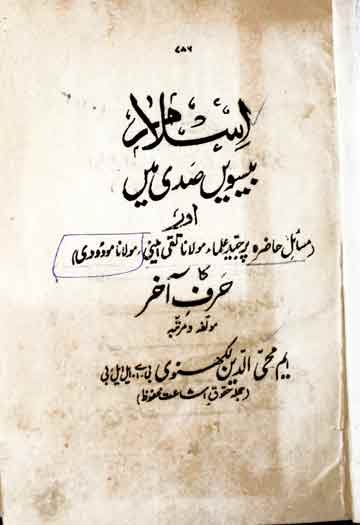 ۷۸۶
اسلام
بیسویں صدی میں
اور
(مسائل حاضرہ پر جید علماء مولانا تقی امینی، مولانا مودودی)
کا
حرفِ آخر
مولفہ و مرتبہ
ایم محی الدین لکھنوی بی۔اے۔ ایل ایل بی
(جملہ حقوق اشاعت محفوظ)